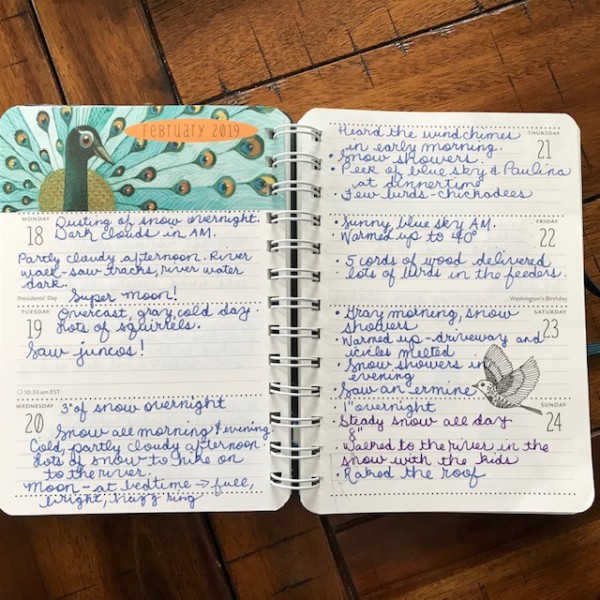 FEBRUARY 2019
MONDAY
18
Dusting of snow overnight.
Dark clouds in AM.
Partly cloudy afternoon. River
walk - saw tracks, river water
dark.
Presidents' Day
Super moon!
TUESDAY
19
Overcast, gray, cold day.
Lots of squirrels.
Saw juncos!
10:53 am EST
WEDNESDAY
20
3" of snow overnight
Snow all morning & evening
Cold, partly cloudy afternoon.
Lots of snow to hike on
to the river.
Moon - at bedtime → full,
bright, hazy ring
THURSDAY
21
Heard the windchimes
in early morning.
• Snow showers.
• Peek of blue sky & Paulina
at dinnertime
• Few birds - chickadees
FRIDAY
22
• Sunny blue sky AM.
• Warmed up to 40°
• 5 cords of wood delivered
lots of birds in the feeders.
Washington's Birthday
SATURDAY
23
• Gray morning, snow
showers
• Warmed up - driveway and
icicles melted
• Snow showers in
evening
• Saw an ermine
SUNDAY
24
• 1" overnight
• Steady snow all day
8"
• Walked to the river in the
snow with the kids
• Raked the roof